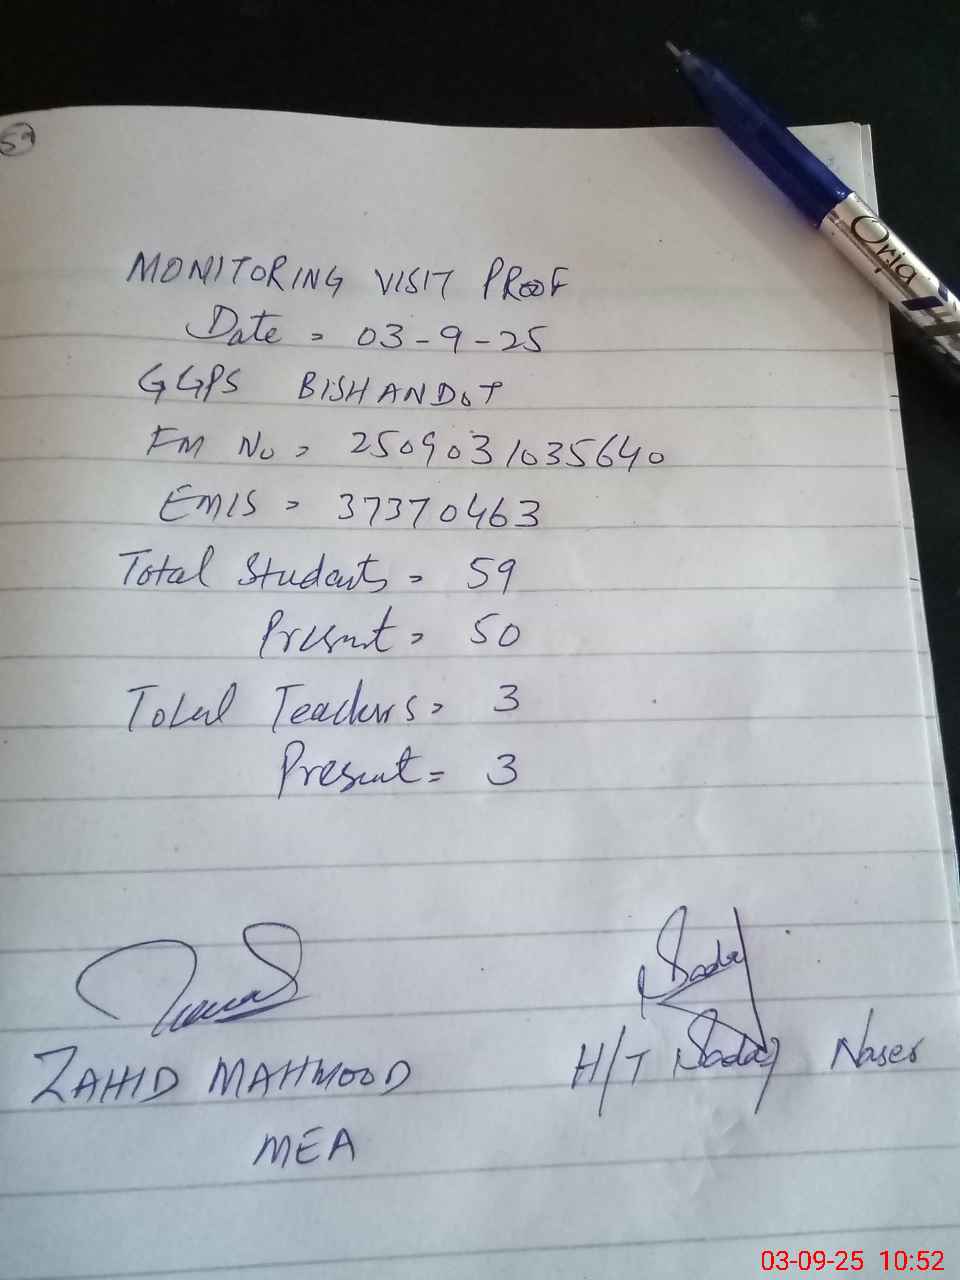 59
MONITORING VISIT PROOF
Date = 03-9-25
GGPS BISHANDOT
FM No = 2509031035640
EMIS = 37370463
Total Students = 59
Present = 50
Total Teachers = 3
Present = 3
Sadaf
ZAHID MAHMOOD
H/T Sadaf Naser
MEA
Oria
03-09-25 10:52